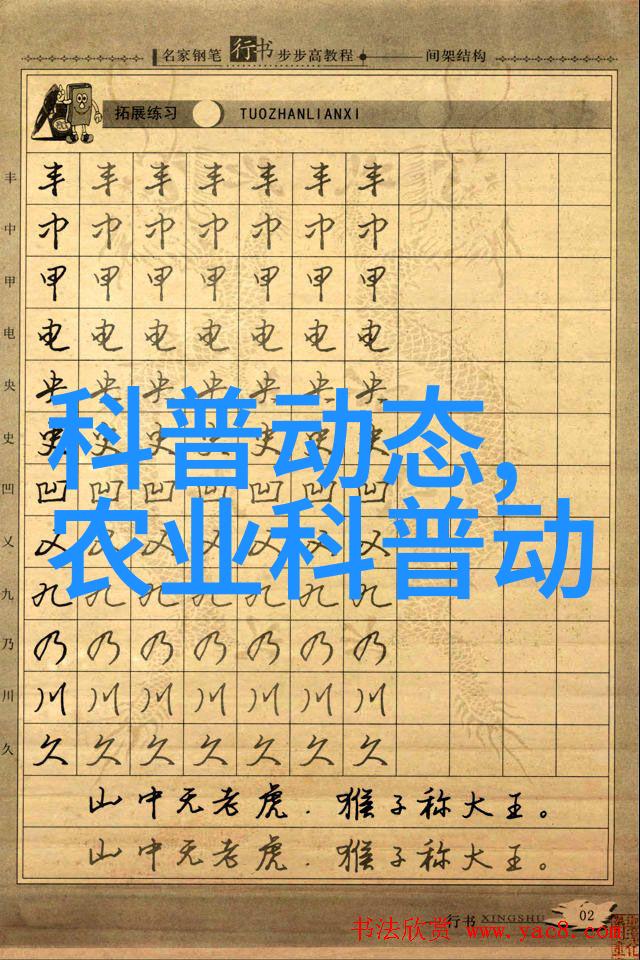 名家钢笔行书步步高教程 间架结构
拓展练习 TUOZHANLIANXI
丰 丰 丰 丰 丰 丰 丰 丰
中 中 中 中 中 中 中 中
甲 甲 甲 甲 甲 甲 甲 甲
电 电 电 电 电 电 电 电
央 央 央 央 央 央 央 央
科普动态,
史 史 史 史 史 史 史 史
凹 凹 凹 凹 凹 凹 凹 凹
农业科普动
乂 乂 乂 乂 乂 乂 乂 乂
九 九 九 九 九 九 九 九
乃 乃 乃 乃 乃 乃 乃 乃
川 川 川 川 川 川 川 川
久 久 久 久 久 久 久 久
山中无老虎.猴子称大王。
山中无老虎.猴子称大王。
行书 XINGSHU 02
书法欣赏 www.yac8.com